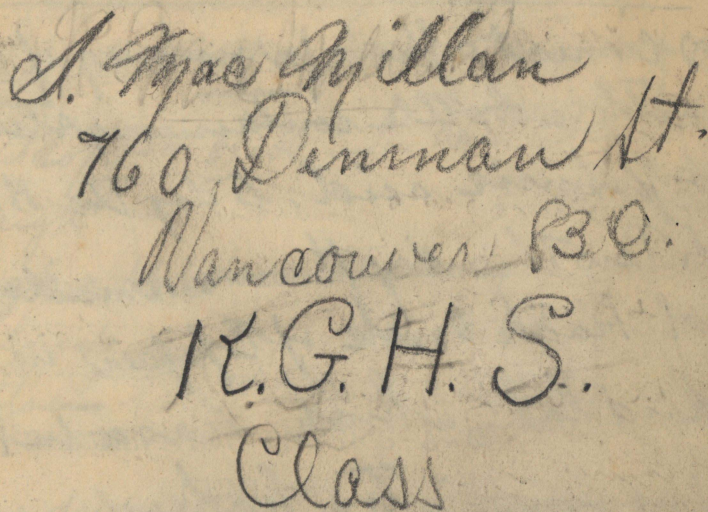 S. Mac Millan
760 Denman St.
Vancouver B.C.
K.G.H.S.
Class